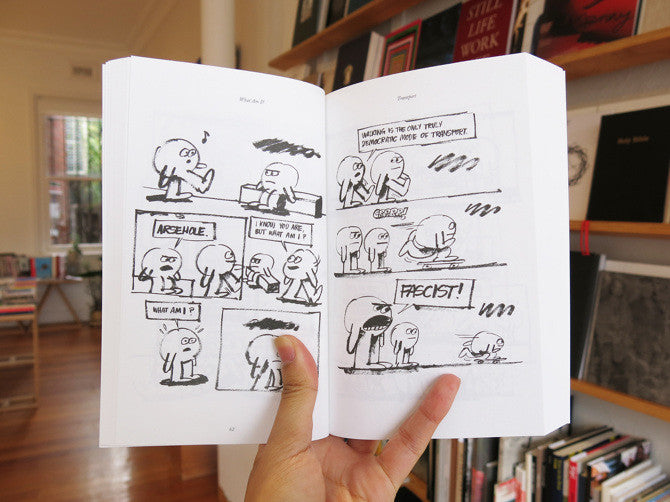 What Am I?
ARSEHOLE.
I KNOW YOU ARE,
BUT WHAT AM I?
WHAT AM I?
62
Transport
WALKING IS THE ONLY TRULY
DEMOCRATIC MODE OF TRANSPORT.
FASCIST!
STILL
LIFE
WORK
Holy Bible